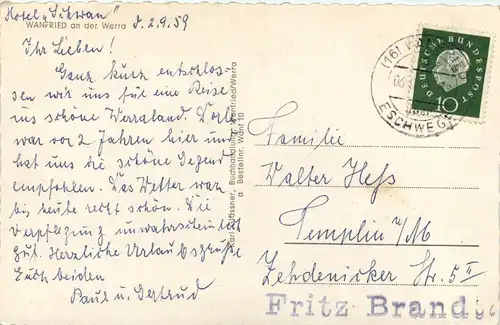 Hotel „Schwan"
WANFRIED an der Werra d. 2.9.59
Ihr Lieben!
Ganz kurz entschlos-
sen wir uns für eine Reise
ins schöne Werraland.
war vor 2 Jahren hier und
hat uns die schöne Gegend
empfohlen. Das Wetter war
bis heute recht schön. Die
Verpflegung unwahrscheinlich
gut. Herzliche Urlaubsgrüße
Euch beiden
Paul u. Gertrud
Buchhandlung, Wanfried/Werra
Bestellnr. Wanf 10
DEUTSCHE BUNDESPOST
10
(16)
ESCHWEGE
Familie
Walter Heß
Templin u/M
Zehdenicker Str. 5 II
Fritz Brand